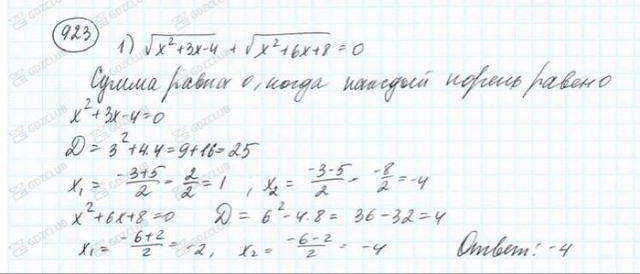 923
1) √x²+3x-4 + √x²+6x+8 = 0
Сумма равна 0, когда каждый корень равен 0
x²+3x-4=0
D = 3²+4·4=9+16=25
x₁ = -3+5/2 = 2/2 = 1 , x₂ = -3-5/2 = -8/2 = -4
x²+6x+8=0 D = 6²-4·8 = 36-32=4
x₁ = -6+2/2 = -2, x₂ = -6-2/2 = -4 Ответ: -4
GDZCLUB